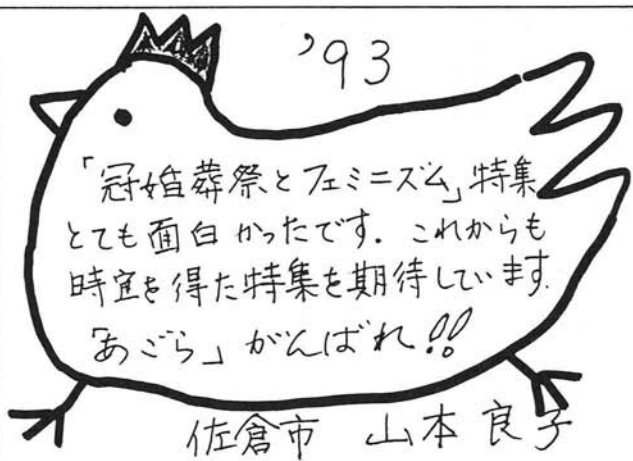 ’93
「冠婚葬祭とフェミニズム」特集
とても面白かったです．これからも
時宜を得た特集を期待しています．
「あごら」がんばれ！！
佐倉市　山本良子